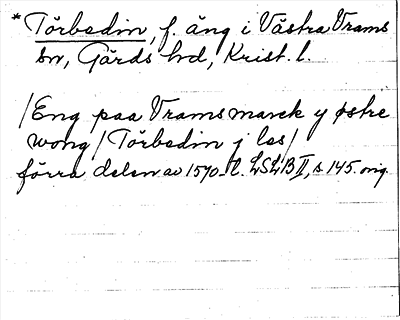 *Törbedin, f. äng i Västra Vrams
sn, Gärds hd, Krist. l.
/Eng paa Vrams marck y østre
wong/Törbedin j les/
förra delen av 1570-t. LSLB II, s 145. orig.